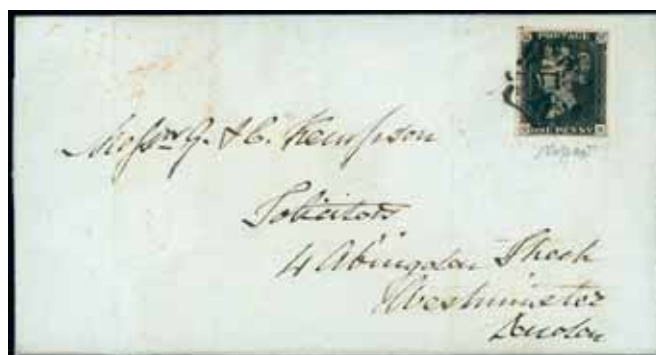 POSTAGE
ONE PENNY
Messrs G. & C. Kempson
Solicitors
4 Abingdon Street
Westminster
London